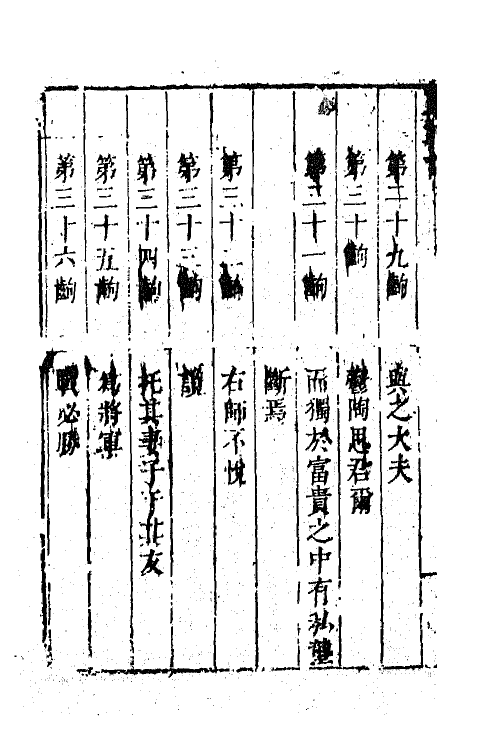 第二十九齣　與之大夫
第三十齣　鬱陶思君爾
第三十一齣　而獨於富貴之中有私壟
斷焉
第三十二齣　右師不悅
第三十三齣
第三十四齣　托其妻子于其友
第三十五齣　為將軍
第三十六齣　戰必勝